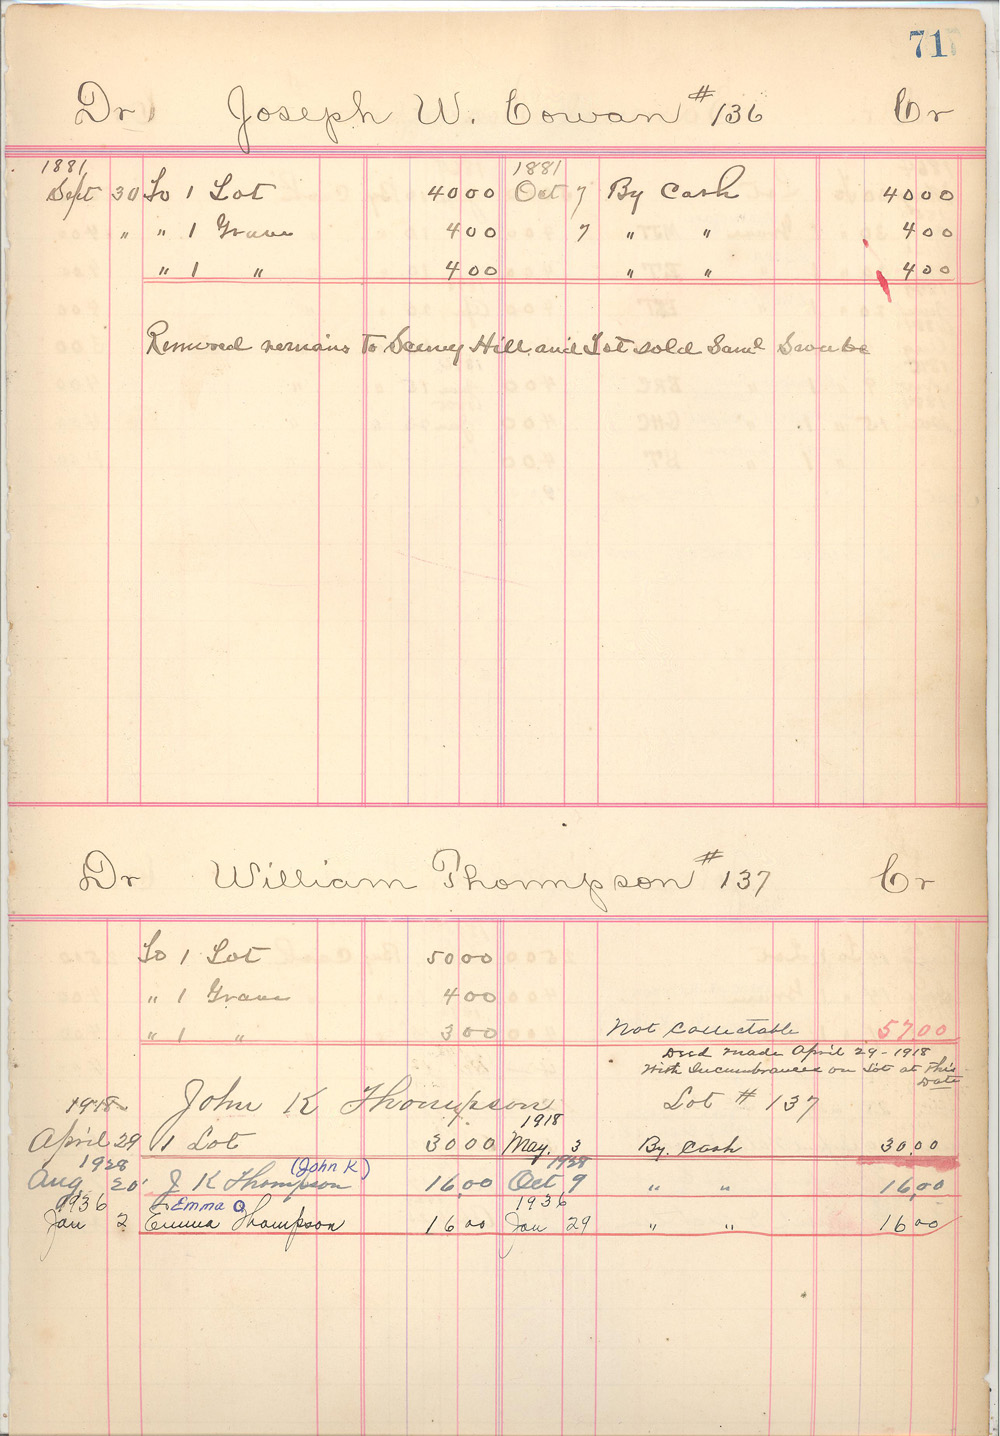 71
Dr Joseph W. Cowan #136 Cr
1881 1881
Sept 30 To 1 Lot 40 00 Oct 7 By Cash 40 00
" " 1 Grave 4 00 7 " " 4 00
" 1 " 4 00 " " 4 00
Removed remains to Seeney Hill and Lot sold Saml
Dr William Thompson #137 Cr
To 1 Lot 50 00
" 1 Grave 4 00
" 1 " 3 00 Not Collectable 57.00
Deed made April 29-1918
With Incumbrances on Lot at this
Date
1918 John K Thompson Lot # 137
1918
April 29 1 Lot 30 00 May. 3 By. Cash 30.00
1928 (John K) 1928
Aug 20 J K Thompson 16.00 Oct 9 " " 16.00
1936 Emma O 1936
Jan 2 Emma Thompson 16 00 Jan 29 " " 16 00